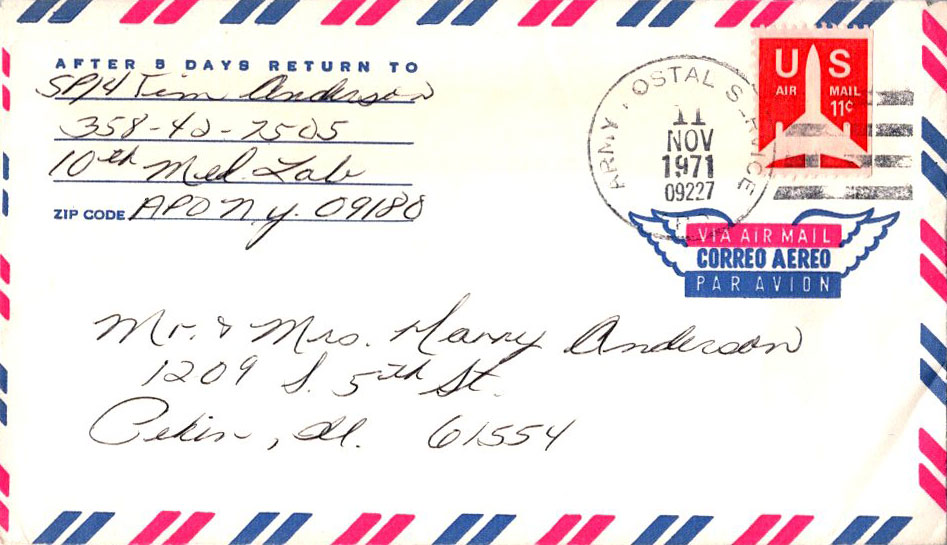 AFTER 5 DAYS RETURN TO
SP/4 Tim Anderson
358-42-7505
10th Med. Lab
ZIP CODE APO N.Y. 09180
ARMY POSTAL SERVICE
11
NOV
1971
09227
US
AIR MAIL
11¢
VIA AIR MAIL
CORREO AEREO
PAR AVION
Mr. & Mrs. Harry Anderson
1209 S. 5th St.
Pekin, Ill. 61554